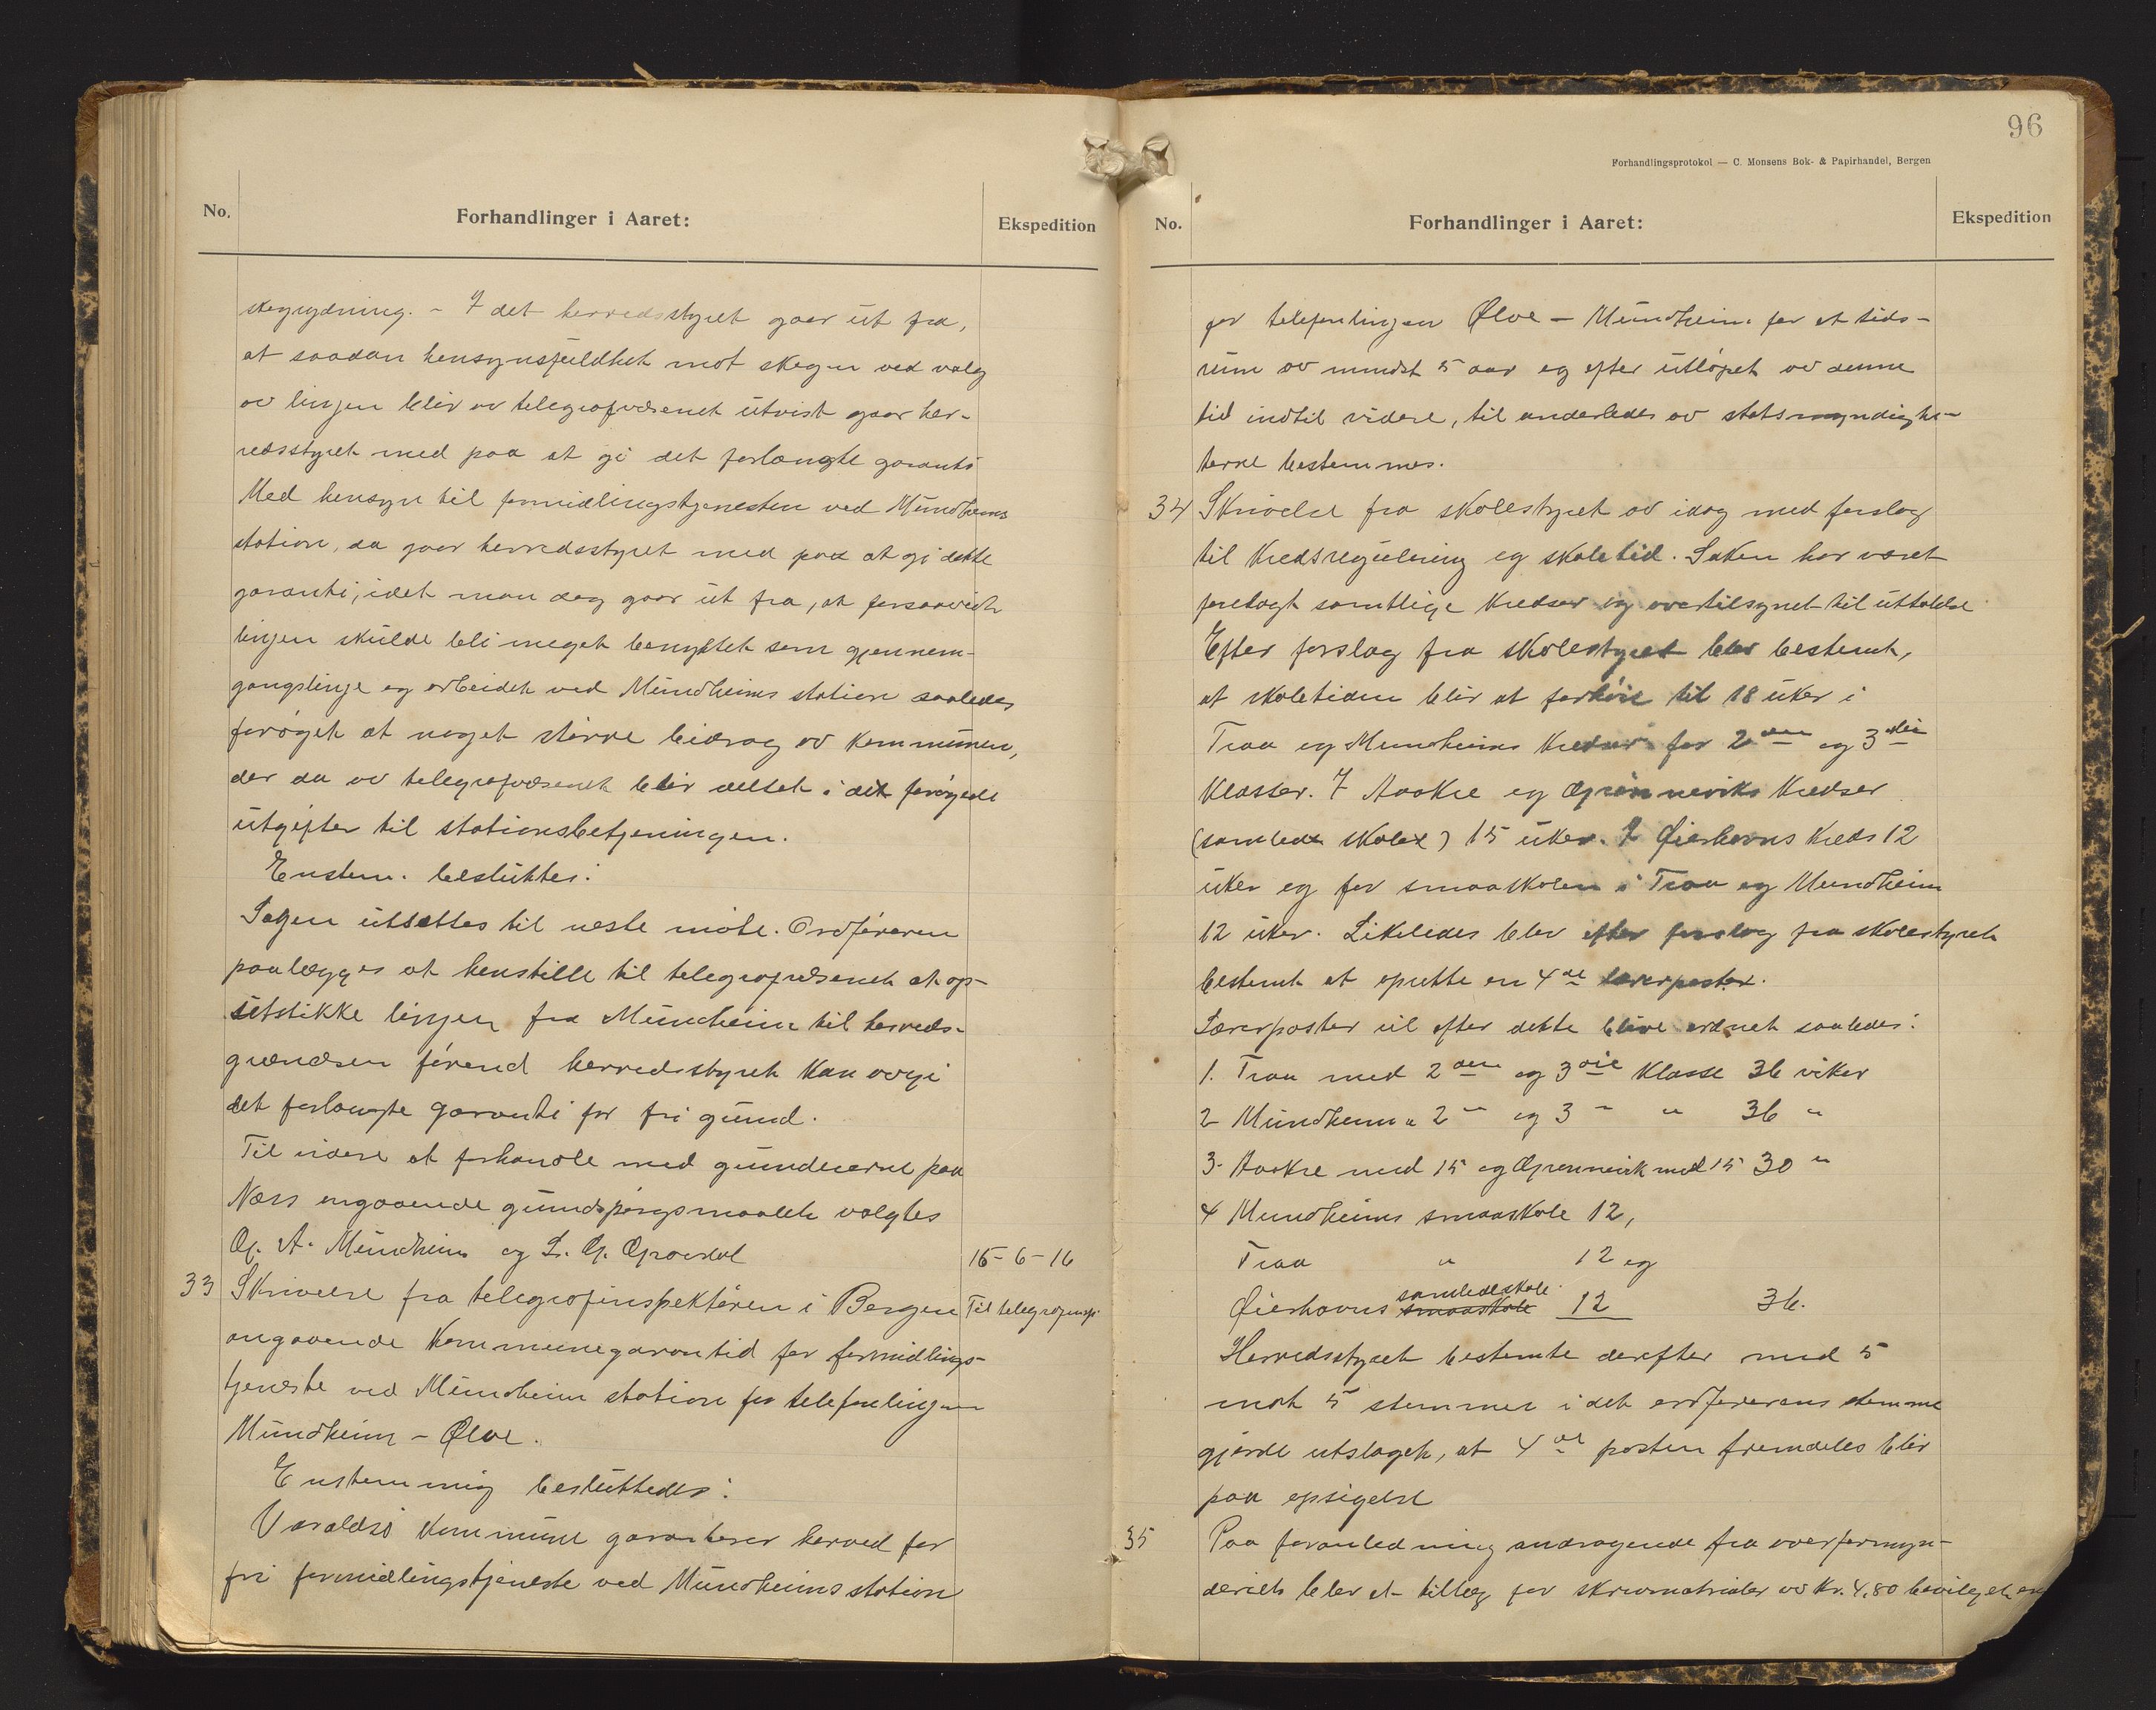 No.
Forhandlinger i Aaret:
Ekspedition
skogrydning. - I det herredsstyret gaar ut fra,
at saadan hensynsfuldhet mot skogen ved valg
av linjen blir av telegrafvæsenet utvist gaar her-
redsstyret med paa at gi det forlangte garanti
Med hensyn til formidlingstjenesten ved Mundheims
station, da gaar herredsstyret med paa at gi dette
garanti, idet man dog gaar ut fra, at forsaavidt
linjen skulde bli meget benyttet som gjennem-
gangslinje og arbeidet ved Mundheims station saaledes
forøget at noget større bidrag av kommunen,
der da av telegrafvæsenet blir deltat i det forøgede
utgifter til stationsbetjeningen.
Enstem. besluttet:
Sagen utsættes til neste møte. Ordføreren
paalægges at henstille til telegrafvæsenet at op-
utstikke linjen fra Mundheim til herreds-
grændsen førend herredsstyret kan avgi
det forlangte garanti for fri grund.
Til videre at forhandle med grundeierne paa
Næss angaaende grundspørgsmaalet valgtes
O. A. Mundheim og L. O.
15-6-16
33 Skrivelse fra telegrafinspektøren i Bergen
Til telegrafinsp.
angaaende kommunegarantid for formidlings-
tjeneste ved Mundheim station for telefonlinjen
Mundheim - Ølve.
Enstemmig besluttedes:
Varaldsø kommune garanterer herved for
fri formidlingstjeneste ved Mundheims station
96
Forhandlingsprotokol — C. Monsens Bok- & Papirhandel, Bergen
No.
Forhandlinger i Aaret:
Ekspedition
for telefonlinjen Ølve - Mundheim for et tids-
rum av mindst 5 aar og efter utløpet av denne
tid indtil videre, til anderledes av statsmyndighe-
terne bestemmes.
34 Skrivelse fra skolestyret av idag med forslag
til kredsregulering og skoletid. Saken har været
forelagt samtlige kredser og overtilsynet til uttalelse
Efter forslag fra skolestyret blev bestemt,
at skoletiden blir at forhøie til 18 uker i
Traa og Mundheims kredser for 2den og 3die
klasser. I Aakre og Grønneviks kredser
(samlede skoler) 15 uker. I Øierhavns kreds 12
uker og for smaaskolen i Traa og Mundheim
12 uker. Likeledes blev efter forslag fra skolestyret
bestemt at oprette en 4de lærerpost.
Lærerposter vil efter dette blive ordnet saaledes:
1. Traa med 2den og 3die klasse 36 uker
2 Mundheim " 2 - og 3 - " 36 "
3. Aakre med 15 og Grønnevik med 15 30 "
4 Mundheims smaaskole 12,
Traa " 12 og
samledeskole
Øierhavns smaaskole 12 36.
Herredsstyret bestemte derefter med 5
mot 5 stemmer i det ordførerens stemme
gjorde utslaget, at 4de posten fremdeles blir
paa opsigelse
35 Paa foranledning andragende fra overformyn-
deriet blev et tillæg for skrivmatrialer av Kr. 4,80 bevilget